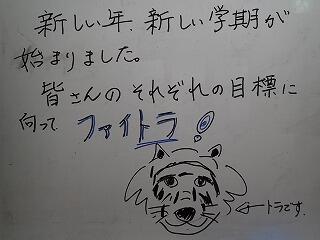 新しい年、新しい学期が
始まりました。
皆さんのそれぞれの目標に
向って ファイトラ!
←トラです。